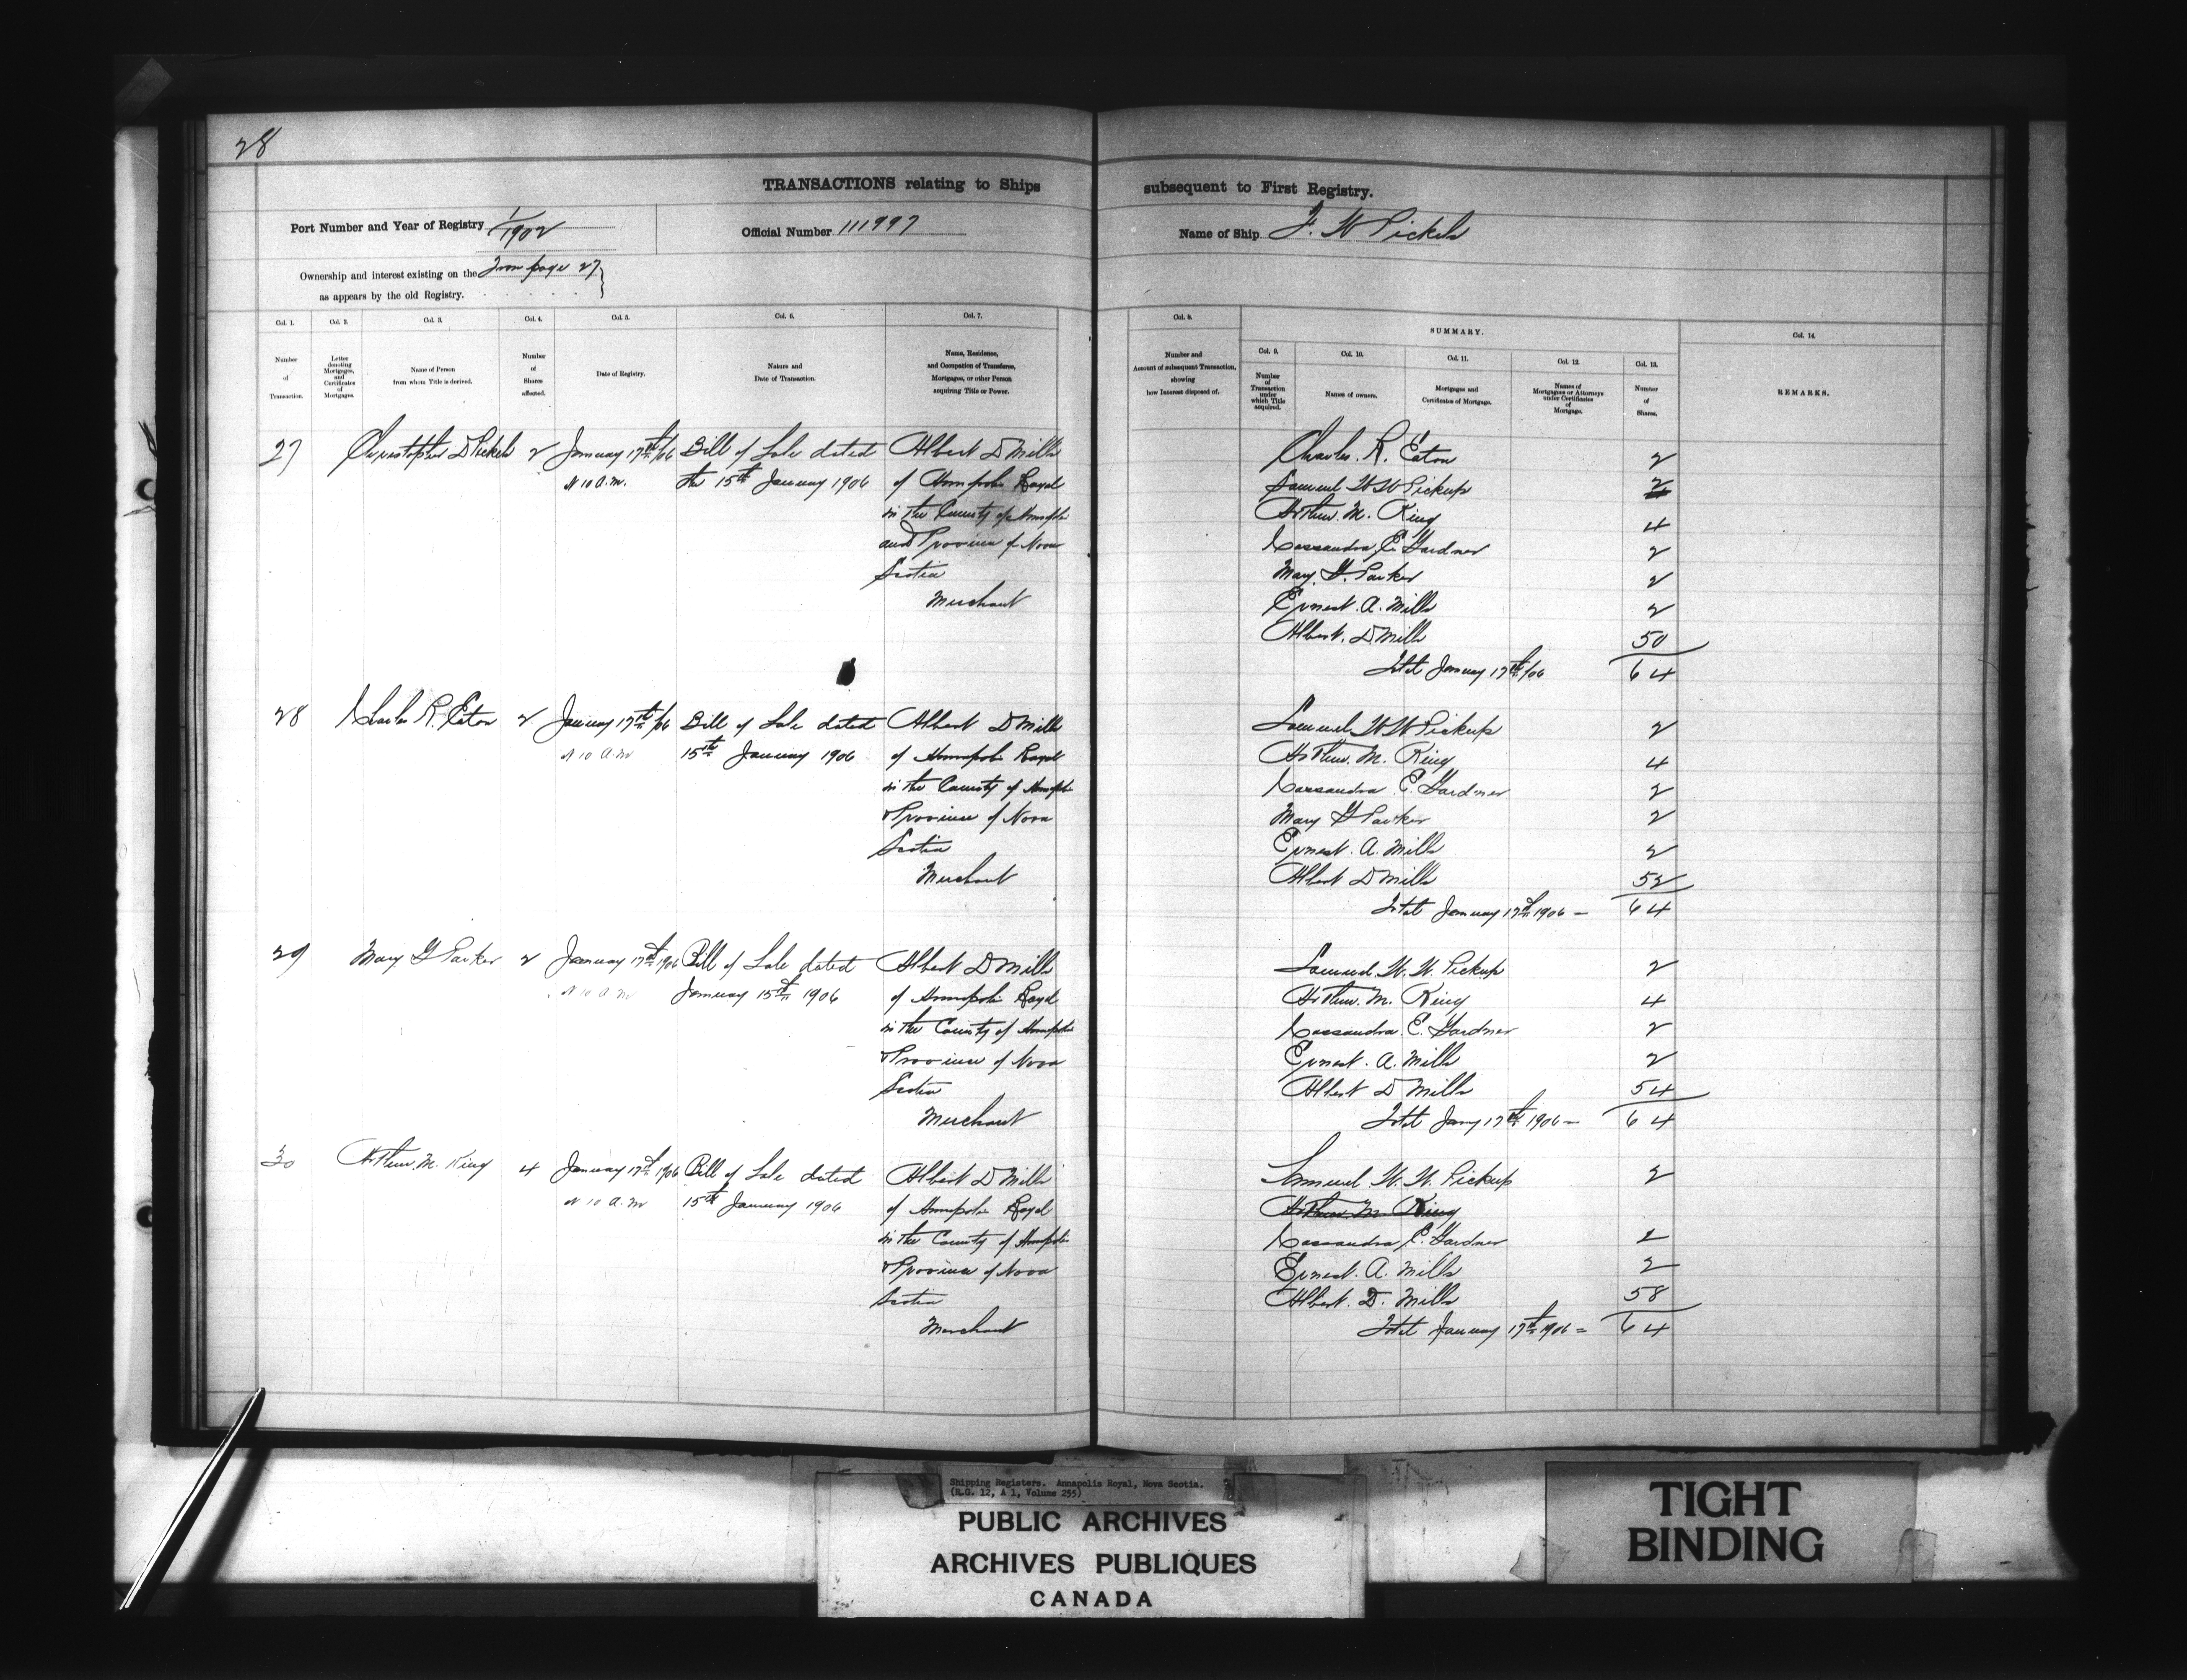 28
TRANSACTIONS relating to Ships subsequent to First Registry.
Port Number and Year of Registry 1/1902
Official Number 111997
Name of Ship F. W Pickels
Ownership and interest existing on the From page 27
as appears by the old Registry.
Col. 1. Number of Transaction.
Col. 2. Letter denoting Mortgages, and Certificates of Mortgages.
Col. 3. Name of Person from whom Title is derived.
Col. 4. Number of Shares affected.
Col. 5. Date of Registry.
Col. 6. Nature and Date of Transaction.
Col. 7. Name, Residence, and Occupation of Transferee, Mortgagee, or other Person acquiring Title or Power.
Col. 8. Number and Account of subsequent Transaction, showing how Interest disposed of.
SUMMARY.
Col. 9. Number of Transaction under which Title acquired.
Col. 10. Names of owners.
Col. 11. Mortgages and Certificates of Mortgage.
Col. 12. Names of Mortgagees or Attorneys under Certificates of Mortgage.
Col. 13. Number of Shares.
Col. 14. REMARKS.
27 Christopher D Pickels 2 January 17th/06 Bill of Sale dated Albert D Mills
At 10 A.M. the 15th January 1906 of Annapolis Royal
in the County of Annapolis
and Province of Nova
Scotia
Merchant
Charles. R. Eaton 2
Samuel W W Pickup 2
Arthur. M. King 4
Cassandra. E. Gardner 2
Mary. G. Parker 2
Ernest. A. Mills 2
Albert. D Mills 50
Total January 17th/06 64
28 Charles R. Eaton 2 January 17th/06 Bill of Sale dated Albert D Mills
At 10 A.M 15th January 1906 of Annapolis Royal
in the County of Annapolis
& Province of Nova
Scotia
Merchant
Samuel W W Pickup 2
Arthur. M. King 4
Cassandra E. Gardner 2
Mary G Parker 2
Ernest. A. Mills 2
Albert D Mills 52
Total January 17th 1906 — 64
29 Mary G Parker 2 January 17th 1906 Bill of Sale dated Albert D Mills
At 10 A.M January 15th 1906 of Annapolis Royal
in the County of Annapolis
& Province of Nova
Scotia
Merchant
Samuel. W. W. Pickup 2
Arthur. M. King 4
Cassandra. E. Gardner 2
Ernest. A. Mills 2
Albert D Mills 54
Total Jany 17th 1906 — 64
30 Arthur. M. King 4 January 17th 1906 Bill of Sale dated Albert D Mills
At 10 A.M 15th January 1906 of Annapolis Royal
in the County of Annapolis
& Province of Nova
Scotia
Merchant
Samuel W. W. Pickup 2
Arthur M. King
Cassandra E. Gardner 2
Ernest. A. Mills 2
Albert. D. Mills 58
Total January 17th 1906 = 64
Shipping Registers. Annapolis Royal, Nova Scotia.
(R.G. 12, A 1, Volume 255)
PUBLIC ARCHIVES
ARCHIVES PUBLIQUES
CANADA
TIGHT
BINDING